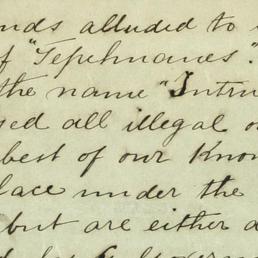 nds alluded to
of "Tepehuanes".
the name "Intru
sed all illegal o
best of our Know
lace under the
but are either a